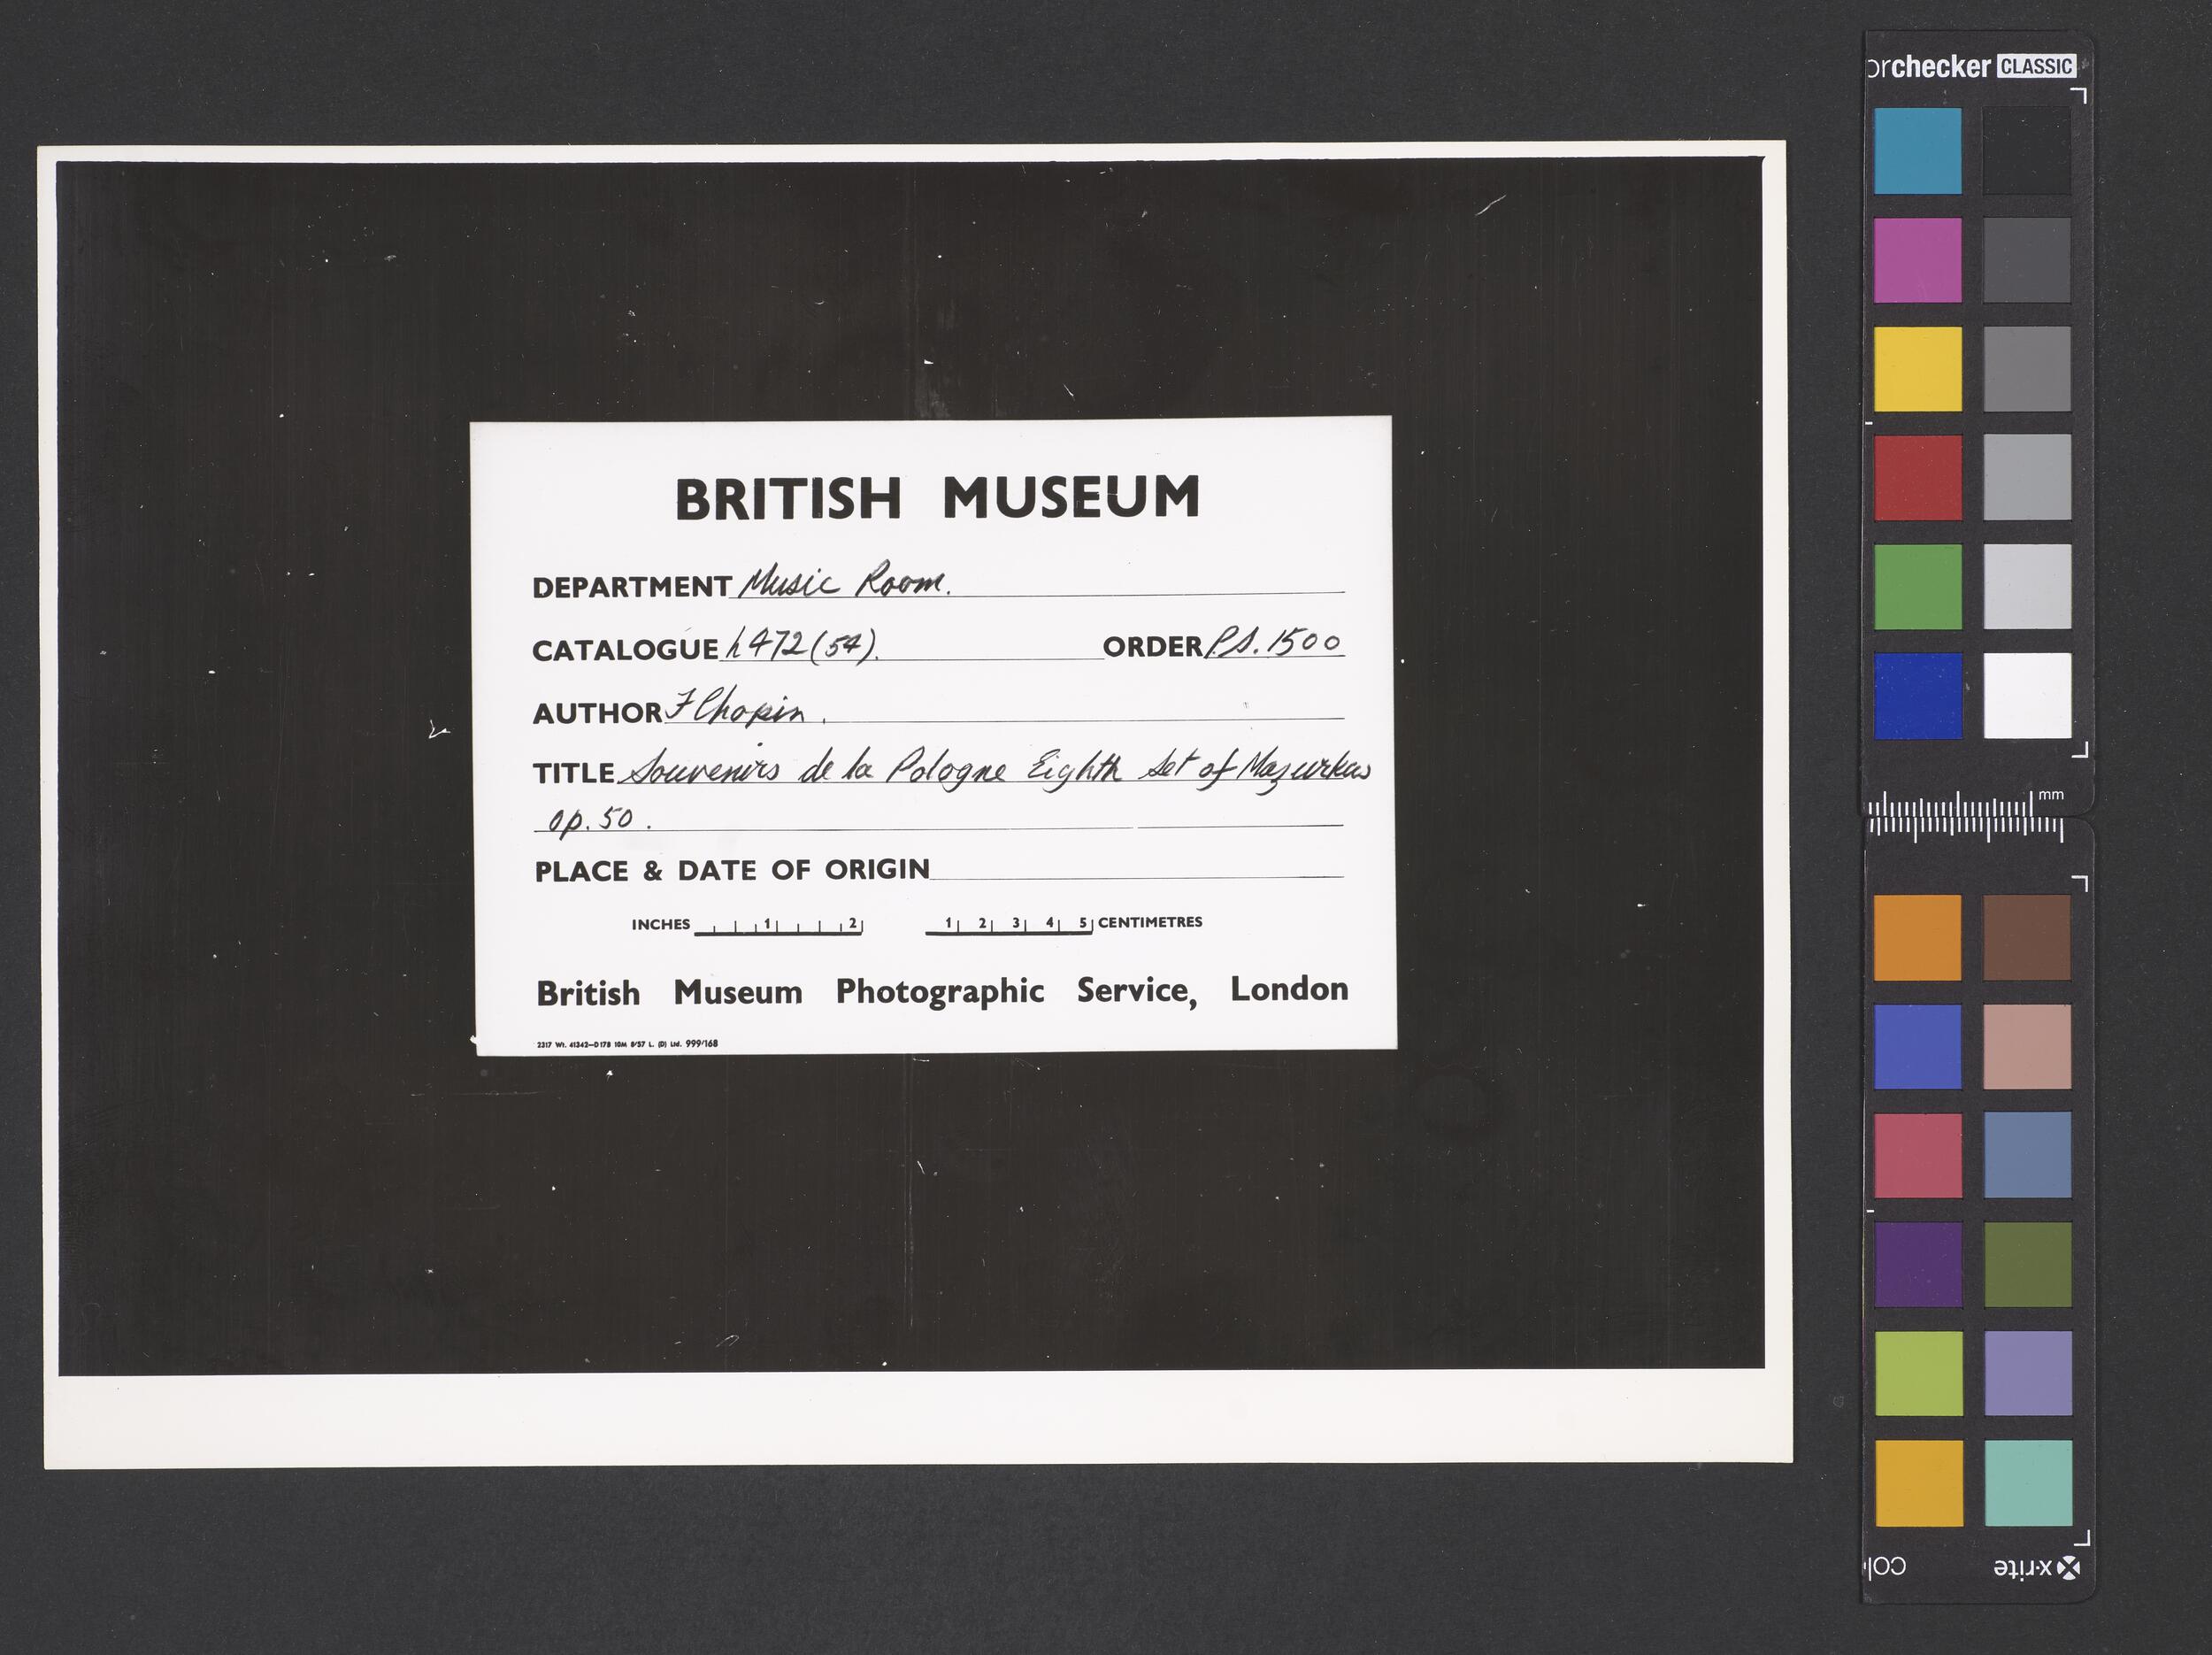 BRITISH MUSEUM
DEPARTMENT Music Room.
CATALOGUE h 472 (54). ORDER P.S. 1500
AUTHOR F Chopin.
TITLE Souvenirs de la Pologne Eighth Set of Mazurkas
op. 50.
PLACE & DATE OF ORIGIN
INCHES 1 2 1 2 3 4 5 CENTIMETRES
British Museum Photographic Service, London
2317 Wt. 41342—D178 10M 8/57 L. (D) Ltd. 999/168
orchecker CLASSIC
mm
x-rite
col